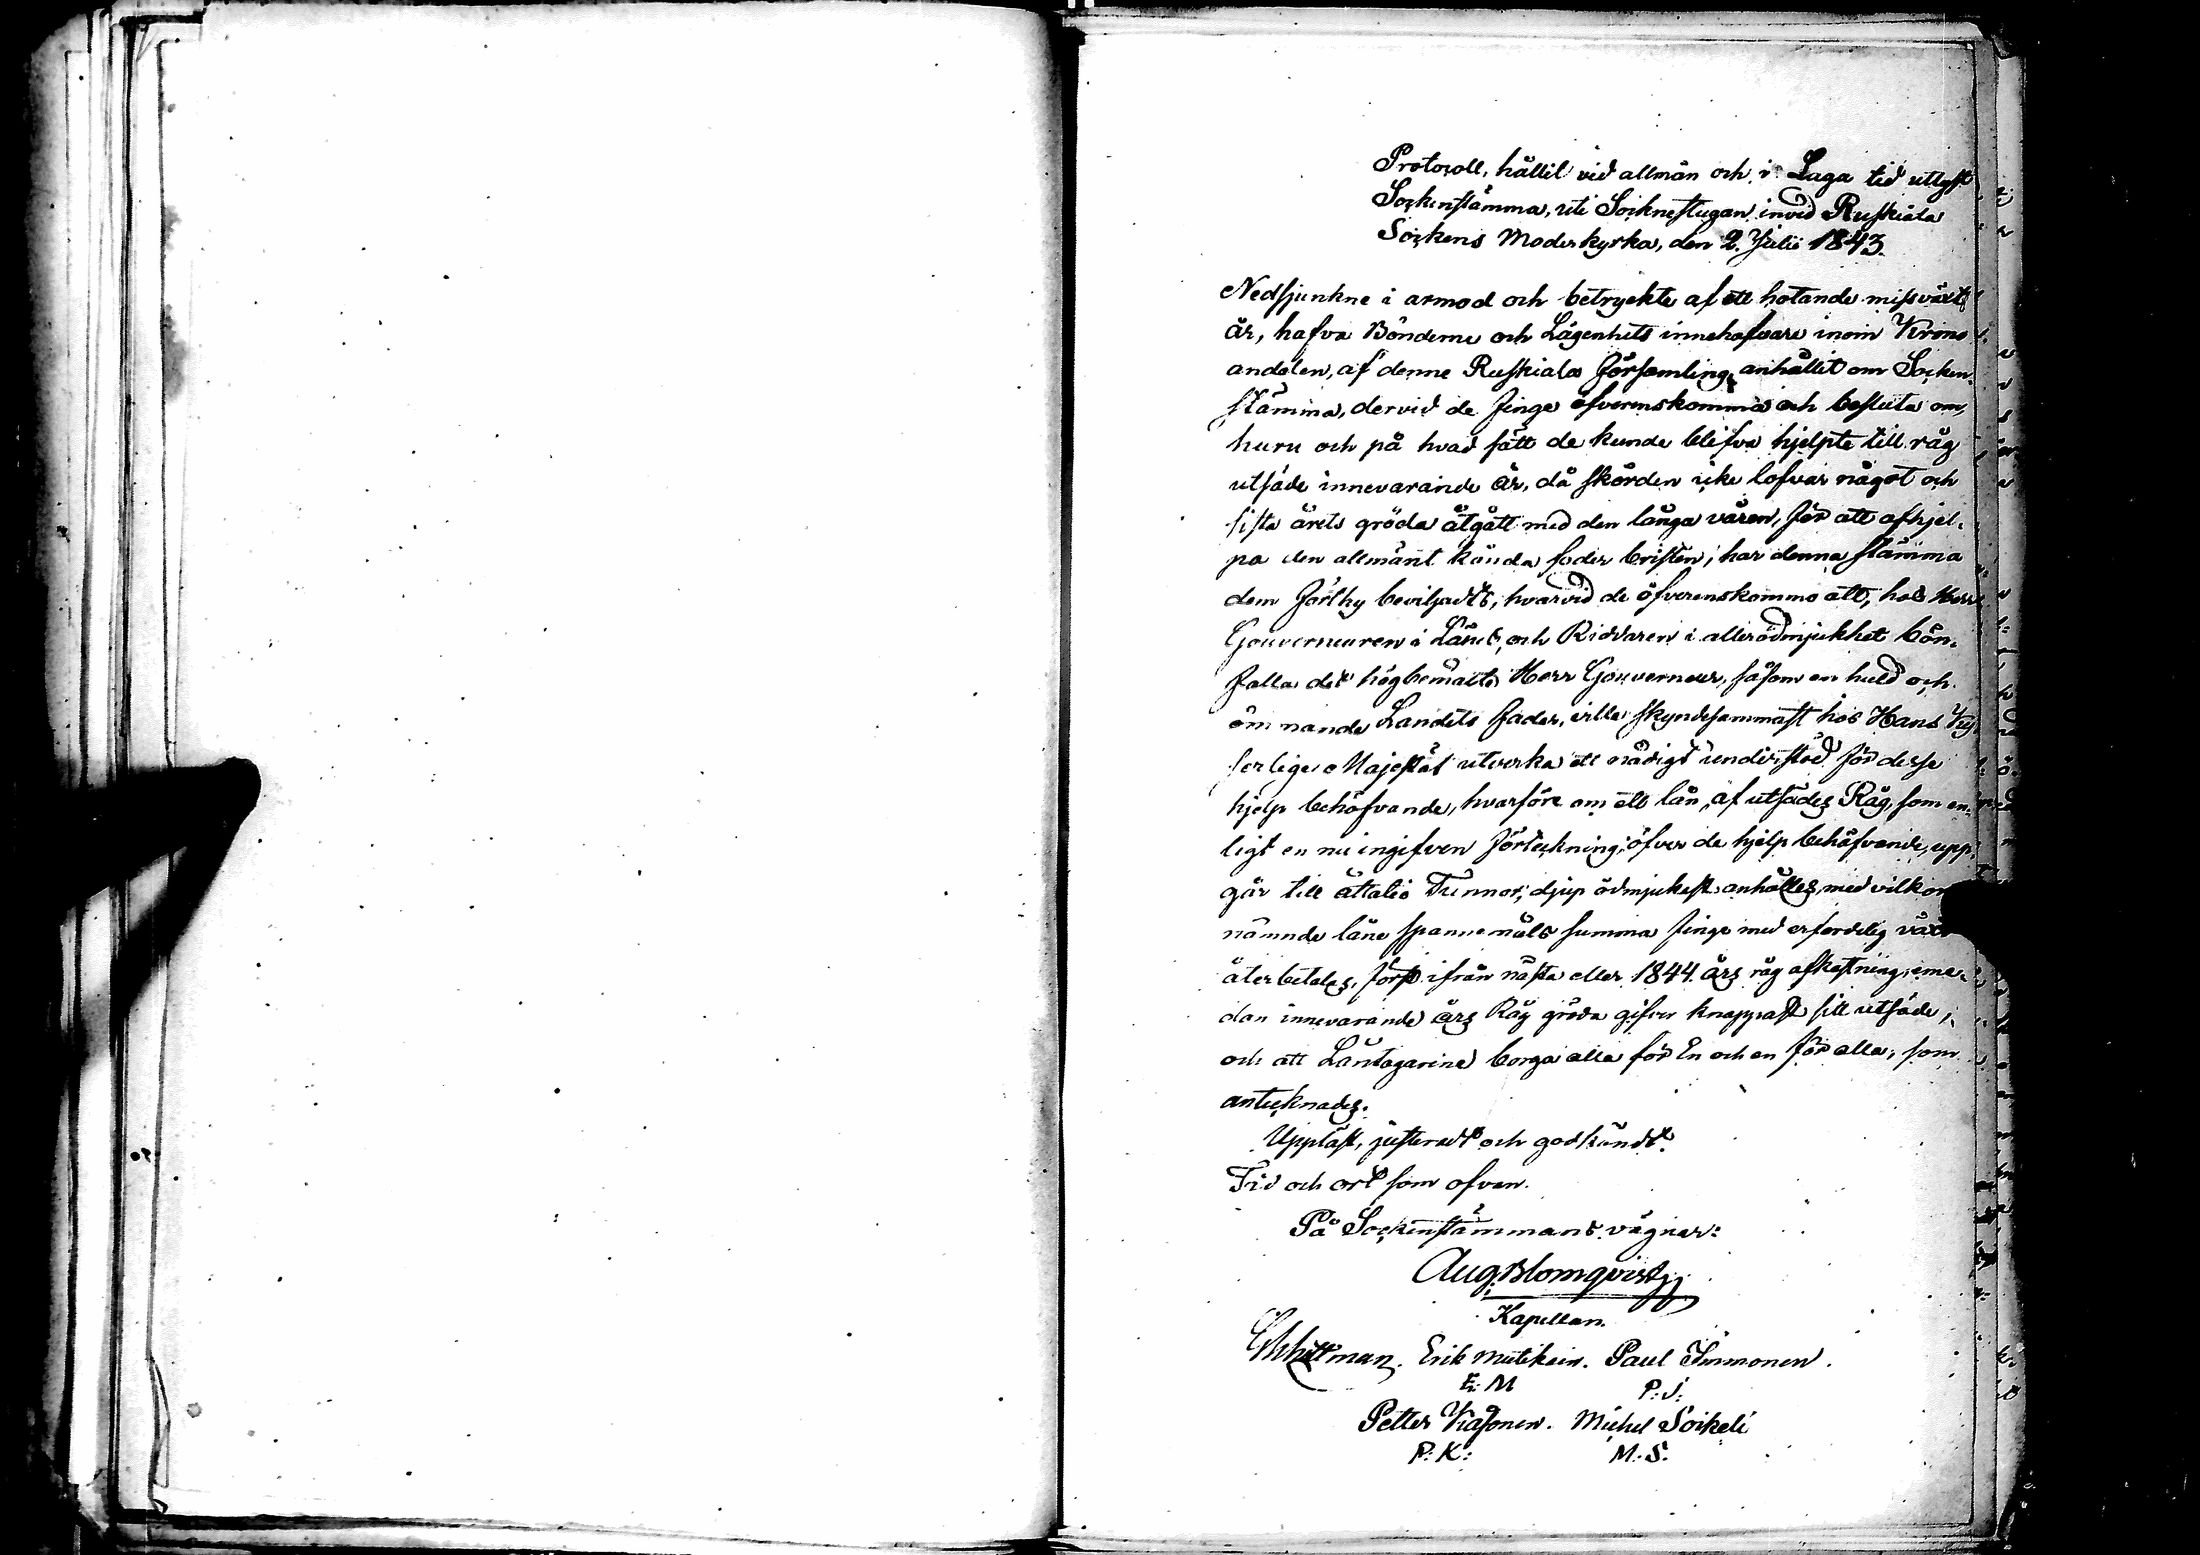 Protocoll, hållit vid allmän och i Laga tid utlyst
Sockenstämma, uti Socknestugan invid Ruskiala
Sockens Moderkyrka, den 2. Julii 1843.
Nedsjunkne i armod och betryckte af ett hotande missväxts
år, hafva Bönderne och Lägenhets innehafvare inom Krono
andelen, af denne Ruskiala Församling, anhållit om Socken-
stämma, dervid de finge öfverenskomma och besluta om,
huru och på hvad sätt de kunde blifva hjelpte till råg
utsäde innevarande år, då skörden icke lofvar något och
sista årets gröda åtgått med den långa våren, för att afhjel-
pa den allmänt kända foder bristen; har denna stämma
dem förthy beviljadts, hvarvid de öfverenskommo att, hos Herr
Gouverneuren i Länet, och Riddaren i allerödmjukhet bön-
falla det högbemälte Herr Gouverneur, såsom en huld och
öm nande Landets fader, ville skyndesammast hos Hans Kej-
serlige Majestät utverka ett nådigt understöd för desse
hjelp behöfvande, hvarföre om ett lån, af utsädes Råg, som en-
ligt en nu ingifven förteckning öfver de hjelp behöfvande, upp-
går till åttatio Tunnor, djup ödmjukast anhålles, med vilkor
nämnde låne spannemåls summa finge med erforderlig växt
återbetalas, först ifrån nästa eller 1844. års råg afkastning, eme-
dan innevarande års Råg gröda gifver knappast sitt utsäde,
och att Låntagarine borga alla för En och en för alla; som
antecknades.
Uppläst, justeradt och godkändt.
Tid och ort som ofvan.
På Sockenstämmans vägnar:
Aug. Blomqvist
Kapellan.
Erik Mutikain. Paul Immonen.
E: M P: I:
Petter Kiasonen. Michel Soikeli
P: K: M: S: